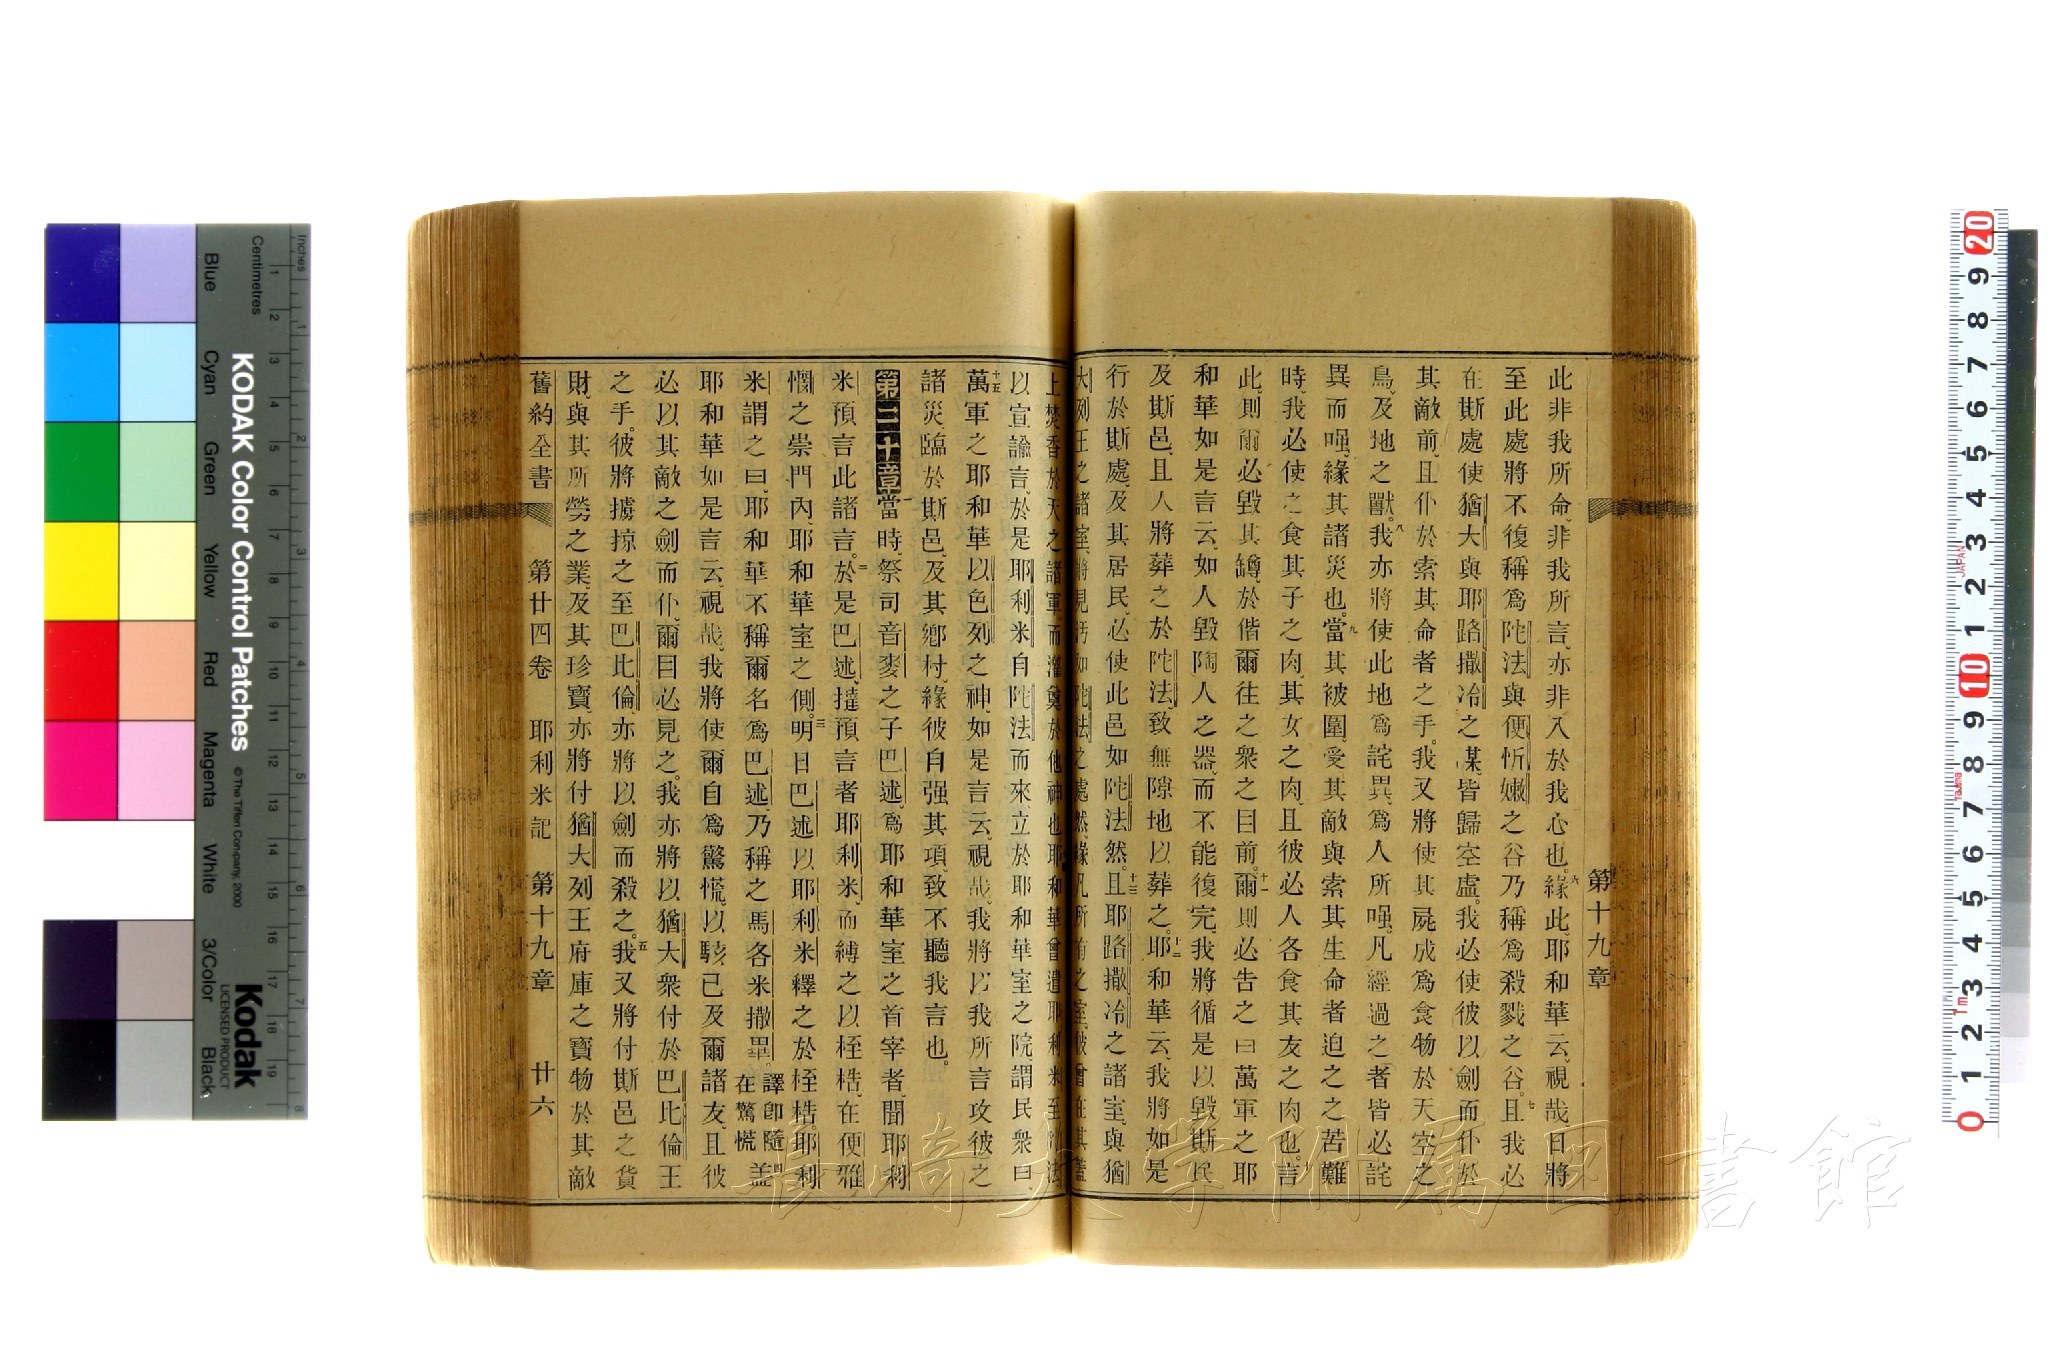 第十九章
此非我所命、非我所言、亦非入於我心也。六緣此、耶和華云、視哉日將
至此處將不復稱爲陀法與便忻嫩之谷乃稱爲殺戮之谷。七且我必
在斯處使猶大與耶路撒冷之謀、皆歸空虛。我必使彼以劍而仆於
其敵前、且仆於索其命者之手。我又將使其屍成爲食物於天空之
鳥、及地之獸。八我亦將使此地爲詫異、爲人所嘑。凡經過之者皆必詫
異而嘑、緣其諸災也。九當其被圍、受其敵與索其生命者迫之之苦難
時、我必使之食其子之肉、其女之肉、且彼必人各食其友之肉也。十言
此、則爾必毀其罇、於偕爾往之衆之目前。十一爾則必告之曰萬軍之耶
和華如是言云、如人毀陶人之器、而不能復完、我將循是以毀斯民
及斯邑、且人將葬之於陀法、致無隙地以葬之。十二耶和華云、我將如是
行於斯處、及其居民、必使此邑如陀法然。十三且耶路撒冷之諸室、與猶
大列王之諸室、將見污如陀法之處然、緣凡所有之室、彼曾在其蓋
上焚香於天之諸軍而灌奠於他神也耶和華曾遣耶利米至陀法
以宣諭言、於是耶利米自陀法而來立於耶和華室之院謂民衆曰、
十五萬軍之耶和華以色列之神、如是言云、視哉、我將以我所言攻彼之
諸災、臨於斯邑、及其鄉村、緣彼自强其項、致不聽我言也。
第二十章一當時、祭司音麥之子巴述、爲耶和華室之首宰者、聞耶利
米預言此諸言。二於是巴述、撻預言者耶利米、而縛之以桎梏、在便雅
憫之崇門內、耶和華室之側。三明日巴述以耶利米釋之於桎梏。耶利
米謂之曰、耶和華不稱爾名爲巴述、乃稱之馬各米撒畢。譯卽隨在驚慌四蓋
耶和華如是言云、視哉、我將使爾自爲驚慌、以駭己及爾諸友、且彼
必以其敵之劍而仆、爾目必見之。我亦將以猶大衆付於巴比倫王
之手。彼將擄掠之至巴比倫、亦將以劍而殺之。五我又將付斯邑之貨
財、與其所勞之業、及其珍寶、亦將付猶大列王府庫之寶物於其敵
舊約全書 第廿四卷 耶利米記 第十九章 廿六
KODAK Color Control Patches
© The Tiffen Company, 2000
Kodak
LICENSED PRODUCT
Inches
Centimetres
Blue Cyan Green Yellow Red Magenta White 3/Color Black
長崎大学附属図書館